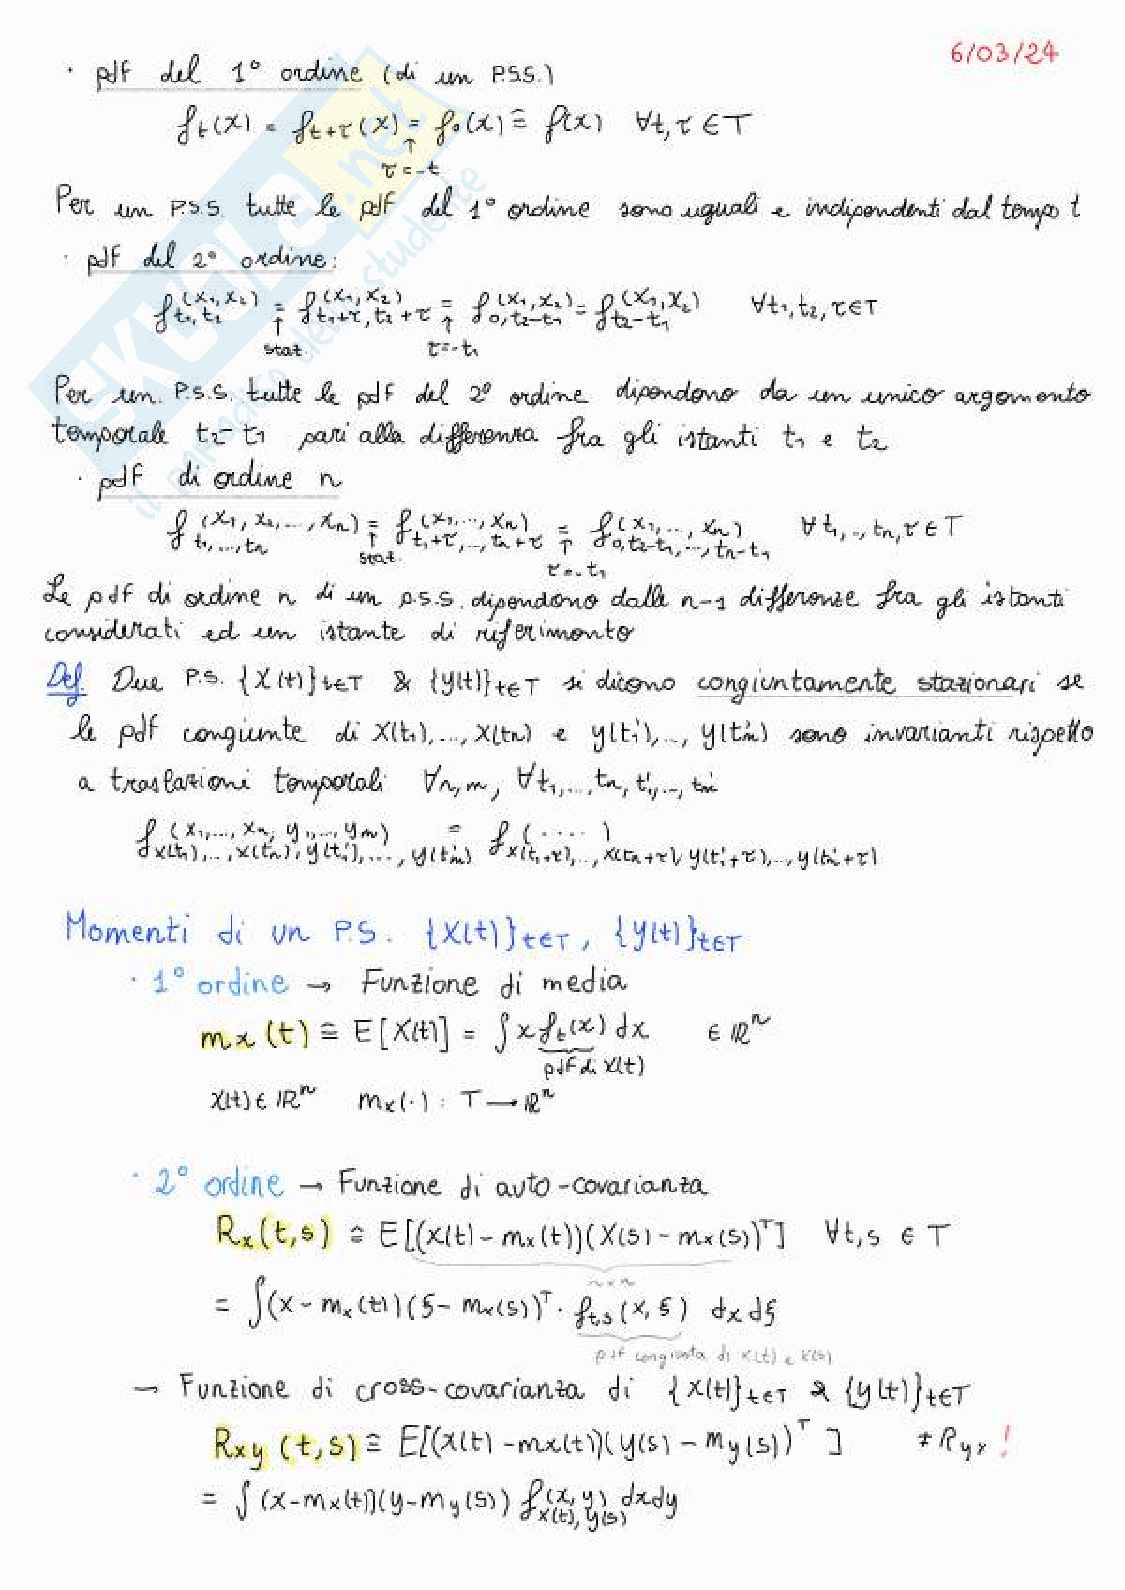 6/03/24
· pdf del 1° ordine (di un P.S.S.)
f_t(x) = f_{t+τ}(x) = f_0(x) ≙ f(x) ∀t,τ ∈ T
↑
τ=-t
Per un P.S.S. tutte le pdf del 1° ordine sono uguali e indipendenti dal tempo t
· pdf del 2° ordine:
f_{t1,t2}(x1,x2) = f_{t1+τ,t2+τ}(x1,x2) = f_{0,t2-t1}(x1,x2) = f_{t2-t1}(x1,x2) ∀t1,t2,τ∈T
↑ ↑
stat. τ=-t1
Per un P.S.S. tutte le pdf del 2° ordine dipendono da un unico argomento
temporale t2-t1 pari alla differenza fra gli istanti t1 e t2
· pdf di ordine n
f_{t1,...,tn}(x1,x2,...,xn) = f_{t1+τ,...,tn+τ}(x1,...,xn) = f_{0,t2-t1,...,tn-t1}(x1,...,xn) ∀t1,..,tn,τ∈T
↑ ↑
stat. τ=-t1
Le pdf di ordine n di un P.S.S. dipendono dalle n-1 differenze fra gli istanti
considerati ed un istante di riferimento
Def. Due P.S. {X(t)}_{t∈T} & {y(t)}_{t∈T} si dicono congiuntamente stazionari se
le pdf congiunte di X(t1),...,X(tn) e y(t1'),..,y(tm') sono invarianti rispetto
a traslazioni temporali ∀n,m, ∀t1,...,tn,t1',..,tm'
f_{x(t1),..,x(tn),y(t1'),...,y(tm')}(x1,...,xn,y1,...,ym) = f_{x(t1+τ),..,x(tn+τ),y(t1'+τ),..,y(tm'+τ)}(....)
Momenti di un P.S. {X(t)}_{t∈T}, {y(t)}_{t∈T}
· 1° ordine → Funzione di media
m_x(t) ≙ E[X(t)] = ∫x f_t(x) dx ∈ ℝ^n
pdf di X(t)
X(t)∈ℝ^n m_x(·): T → ℝ^n
· 2° ordine → Funzione di auto-covarianza
R_x(t,s) ≙ E[(x(t)-m_x(t))(X(s)-m_x(s))^T] ∀t,s ∈ T
n×n
= ∫(x-m_x(t))(ξ-m_x(s))^T · f_{t,s}(x,ξ) dxdξ
pdf congiunta di X(t) e X(s)
→ Funzione di cross-covarianza di {X(t)}_{t∈T} & {y(t)}_{t∈T}
R_{xy}(t,s) ≙ E[(x(t)-m_x(t))(y(s)-m_y(s))^T] ≠ R_{yx} !
= ∫(x-m_x(t))(y-m_y(s)) f_{x(t),y(s)}(x,y) dxdy
SKUOLA.net
il paradiso dello studente